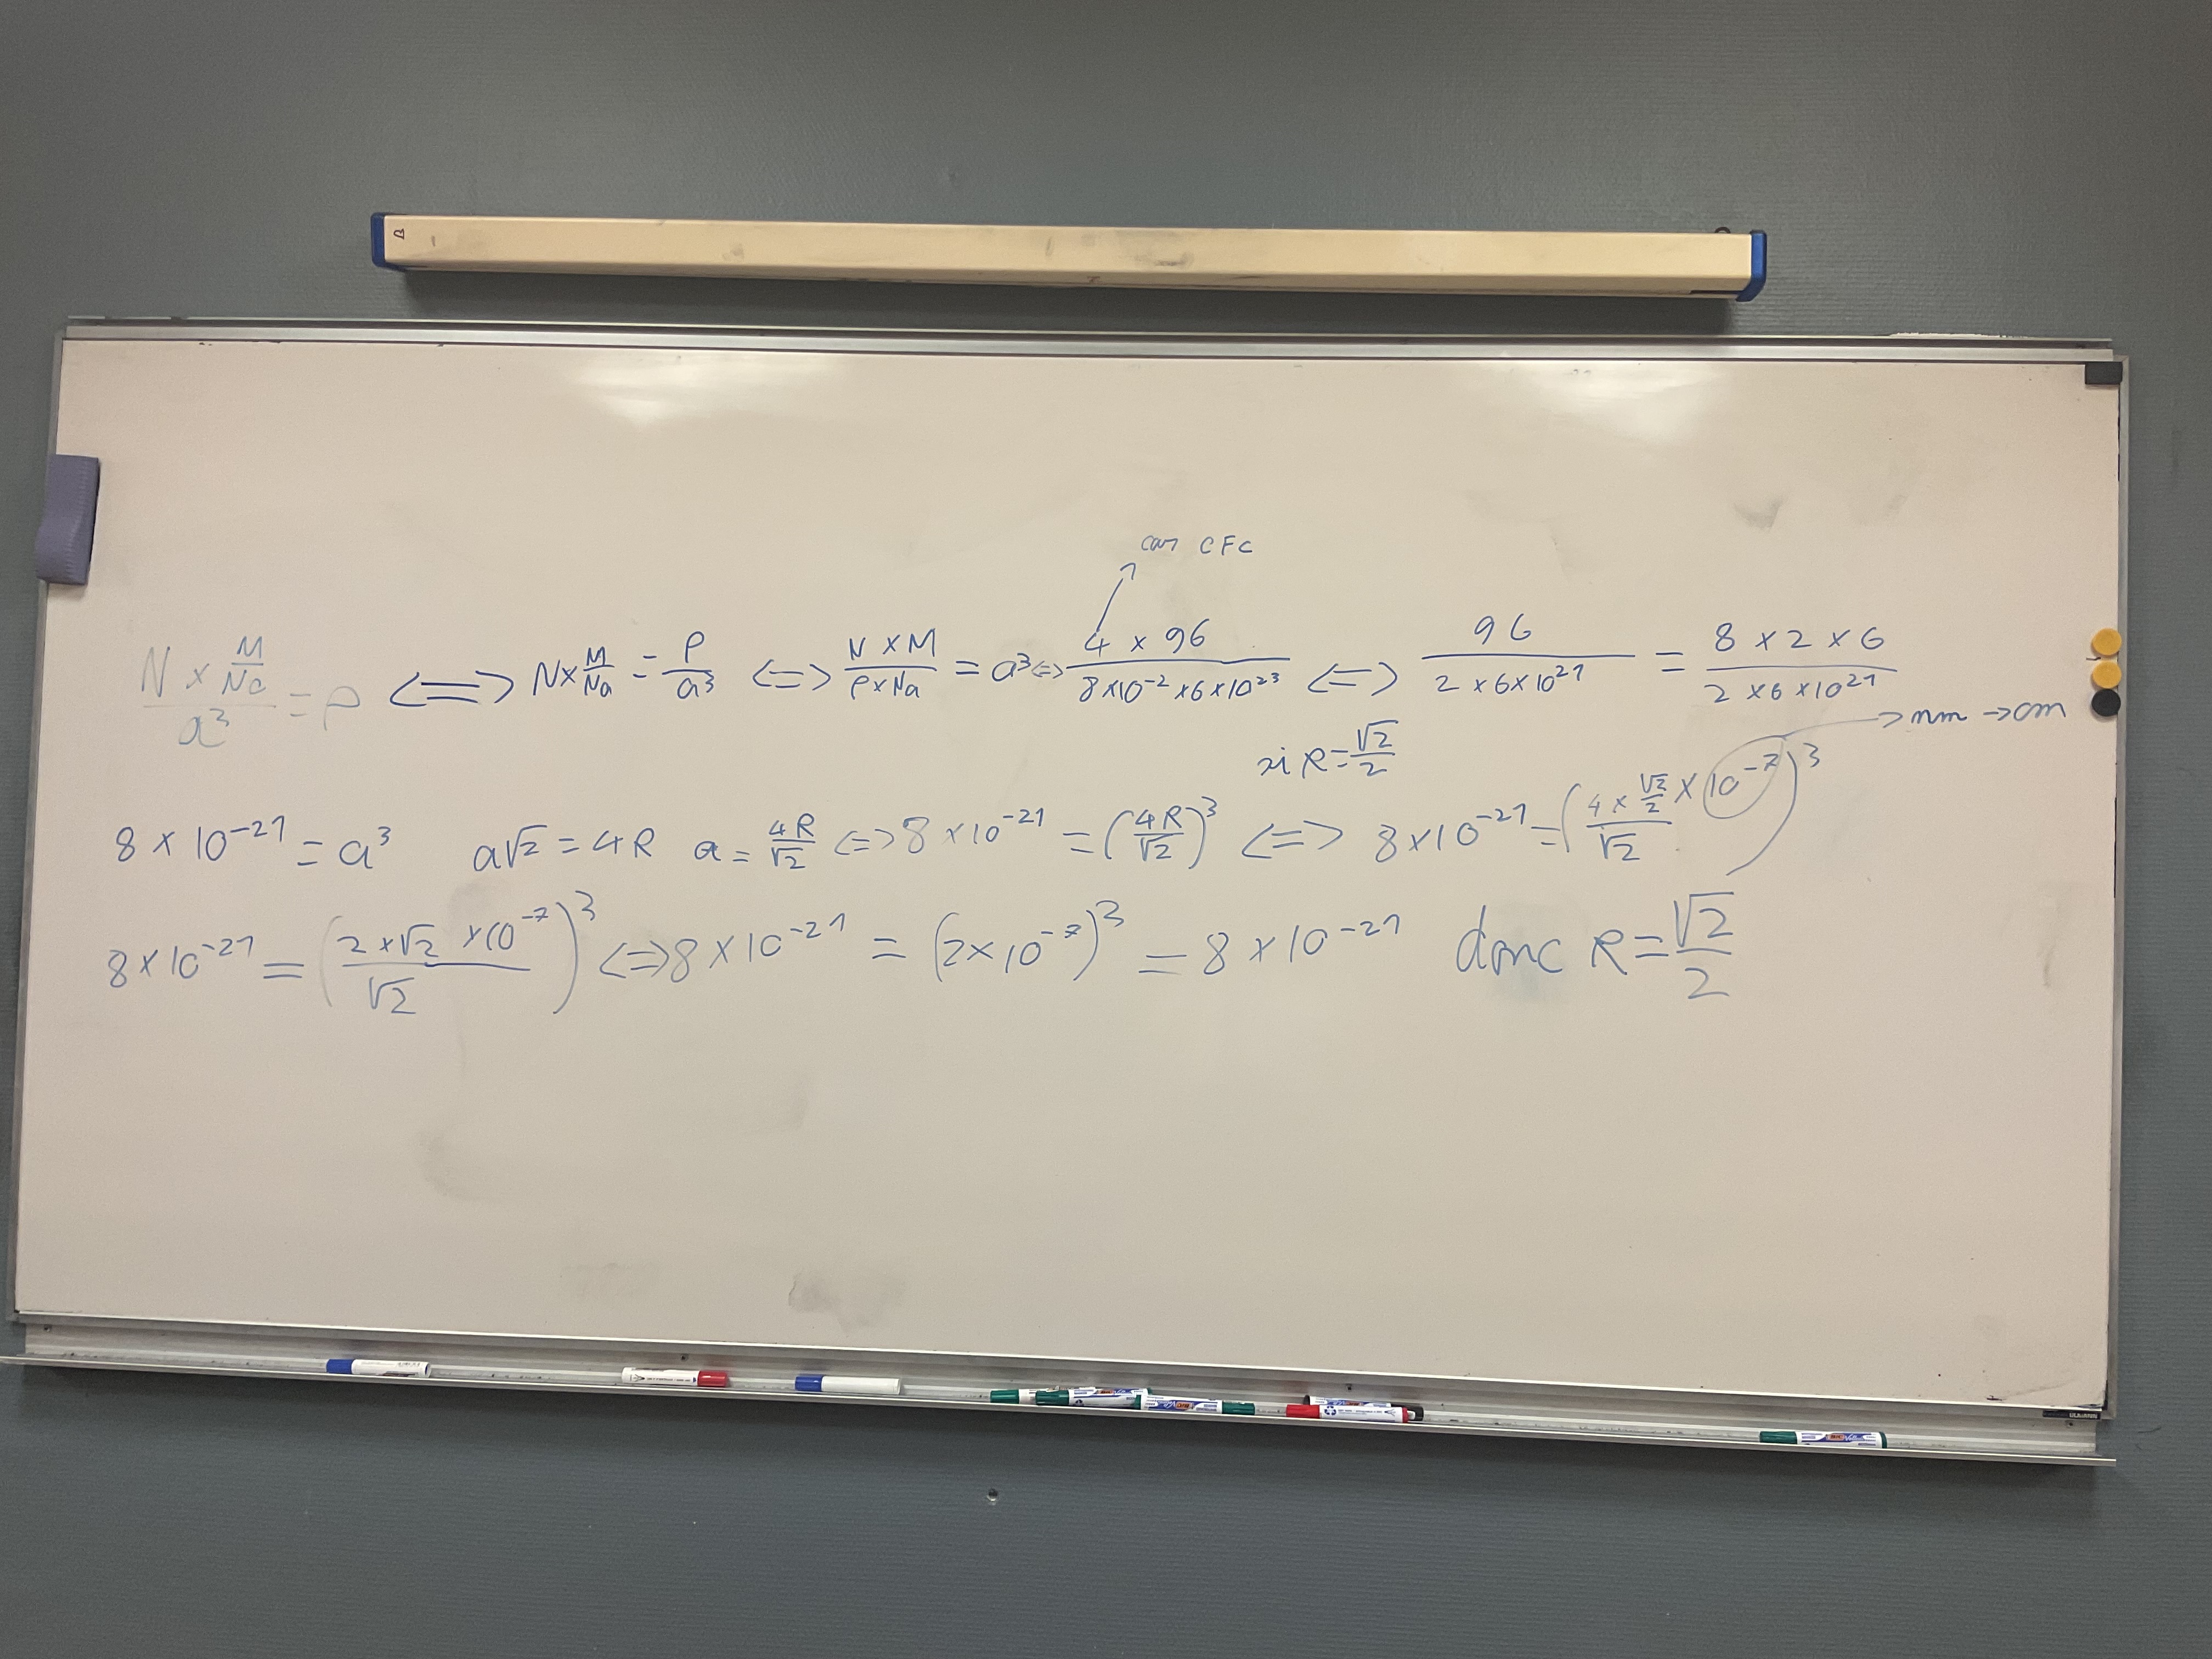 car CFC
(N × M/Na)/a³ = ρ <=> N × M/Na = ρ/a³ <=> (N × M)/(ρ × Na) = a³ <=> (4 × 96)/(8 × 10⁻² × 6 × 10²³) <=> 96/(2 × 6 × 10²¹) = (8 × 2 × 6)/(2 × 6 × 10²¹)
→ nm → cm
si R = √2/2
8 × 10⁻²¹ = a³ a√2 = 4R a = 4R/√2 <=> 8 × 10⁻²¹ = (4R/√2)³ <=> 8 × 10⁻²¹ = ((4 × √2/2 × 10⁻⁷)/√2)³
8 × 10⁻²¹ = ((2 × √2 × 10⁻⁷)/√2)³ <=> 8 × 10⁻²¹ = (2 × 10⁻⁷)³ = 8 × 10⁻²¹ donc R = √2/2